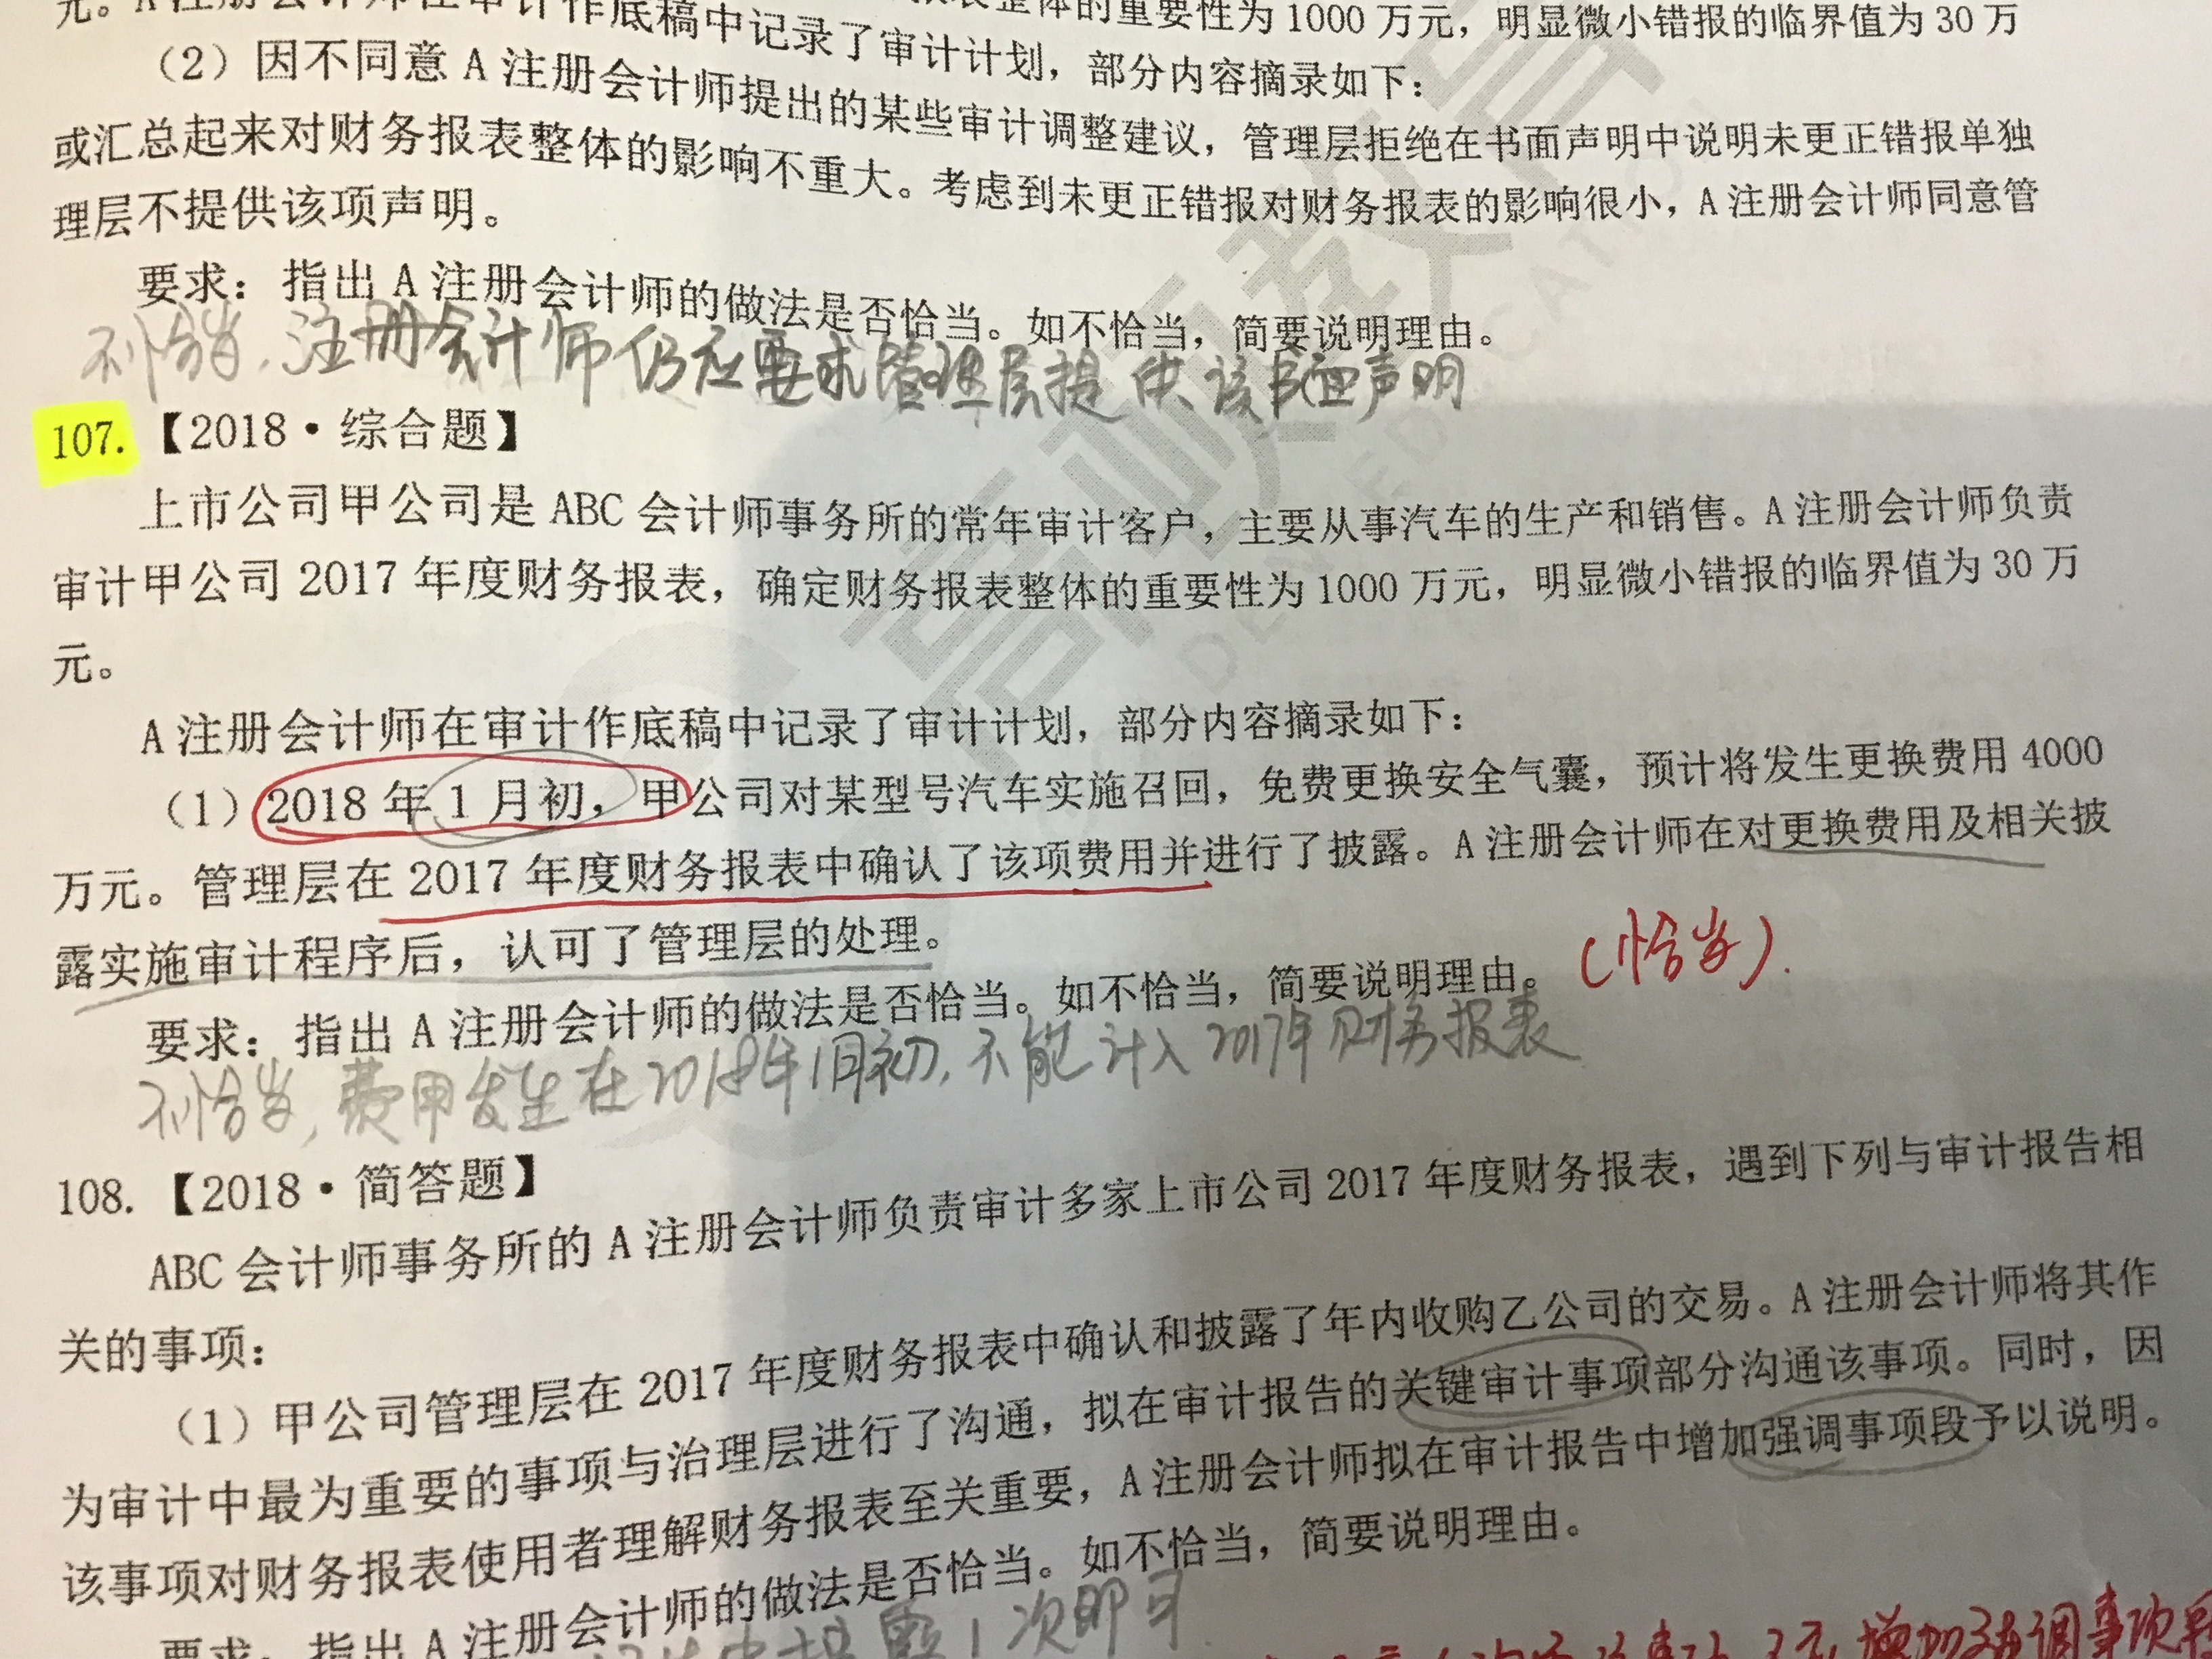 元。A 注册会计师在审计作底稿中记录了审计计划，部分内容摘录如下：
报表整体的重要性为 1000 万元，明显微小错报的临界值为 30 万
（2）因不同意 A 注册会计师提出的某些审计调整建议，管理层拒绝在书面声明中说明未更正错报单独
或汇总起来对财务报表整体的影响不重大。考虑到未更正错报对财务报表的影响很小，A 注册会计师同意管
理层不提供该项声明。
要求：指出 A 注册会计师的做法是否恰当。如不恰当，简要说明理由。
不恰当，注册会计师仍应要求管理层提供该书面声明
107.【2018·综合题】
上市公司甲公司是 ABC 会计师事务所的常年审计客户，主要从事汽车的生产和销售。A 注册会计师负责
审计甲公司 2017 年度财务报表，确定财务报表整体的重要性为 1000 万元，明显微小错报的临界值为 30 万
元。
A 注册会计师在审计作底稿中记录了审计计划，部分内容摘录如下：
（1）2018 年 1 月初，甲公司对某型号汽车实施召回，免费更换安全气囊，预计将发生更换费用 4000
万元。管理层在 2017 年度财务报表中确认了该项费用并进行了披露。A 注册会计师在对更换费用及相关披
露实施审计程序后，认可了管理层的处理。
要求：指出 A 注册会计师的做法是否恰当。如不恰当，简要说明理由。（恰当）.
不恰当，费用发生在2018年1月初，不能计入2017年财务报表
108.【2018·简答题】
ABC 会计师事务所的 A 注册会计师负责审计多家上市公司 2017 年度财务报表，遇到下列与审计报告相
关的事项：
（1）甲公司管理层在 2017 年度财务报表中确认和披露了年内收购乙公司的交易。A 注册会计师将其作
为审计中最为重要的事项与治理层进行了沟通，拟在审计报告的关键审计事项部分沟通该事项。同时，因
该事项对财务报表使用者理解财务报表至关重要，A 注册会计师拟在审计报告中增加强调事项段予以说明。
要求：指出 A 注册会计师的做法是否恰当。如不恰当，简要说明理由。
1次即可
增加强调事项段
高顿教育